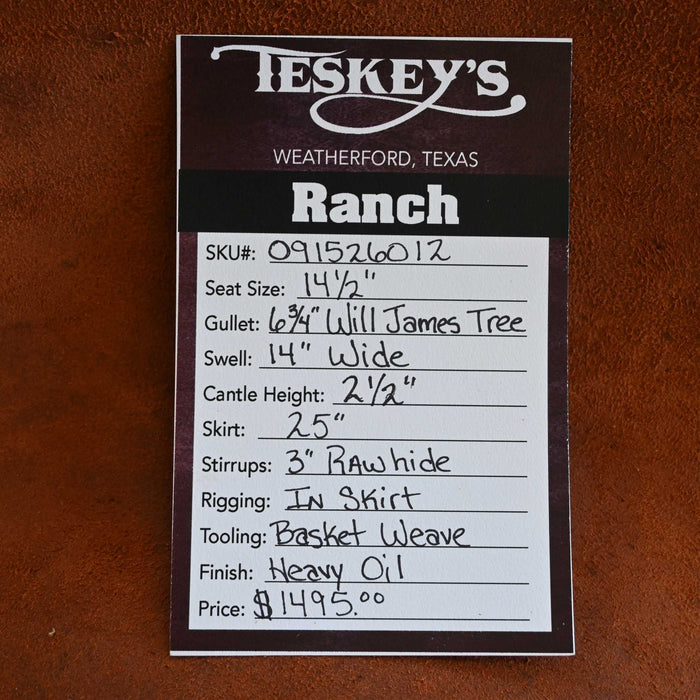 TESKEY'S
WEATHERFORD, TEXAS
Ranch
SKU#: 091526012
Seat Size: 14 1/2"
Gullet: 6 3/4" Will James Tree
Swell: 14" Wide
Cantle Height: 2 1/2"
Skirt: 25"
Stirrups: 3" Rawhide
Rigging: In Skirt
Tooling: Basket Weave
Finish: Heavy Oil
Price: $1495.00